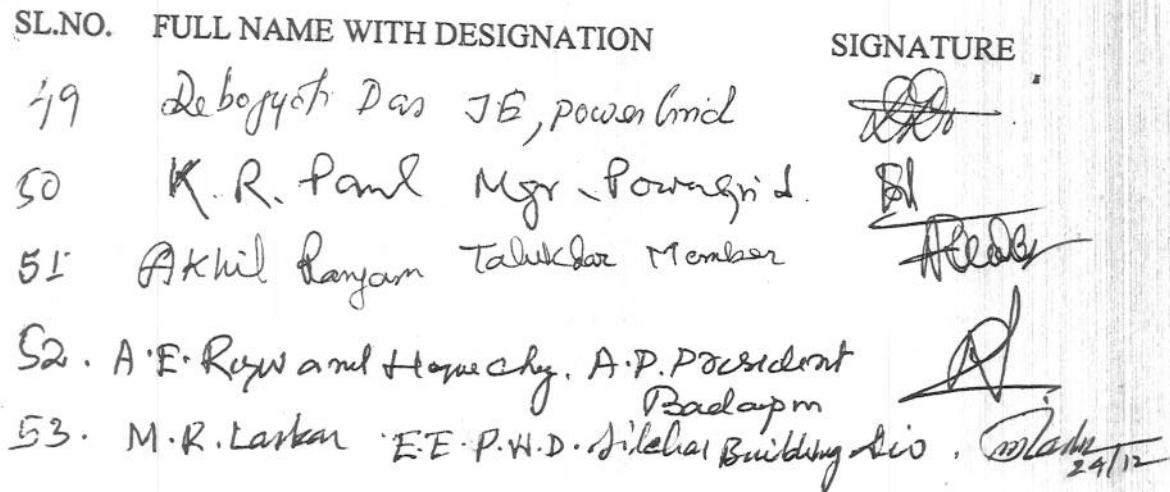 SL.NO. FULL NAME WITH DESIGNATION SIGNATURE
49 Debojyoti Das JE, PowerGrid
50 K. R. Paul Mgr, Powergrid.
51 Akhil Ranjan Talukdar Member
52. A.E. and Hoque Chy. A.P. President
Badarpur
53. M.R. Laskar E.E. P.W.D. Silchar Building Div. 24/12